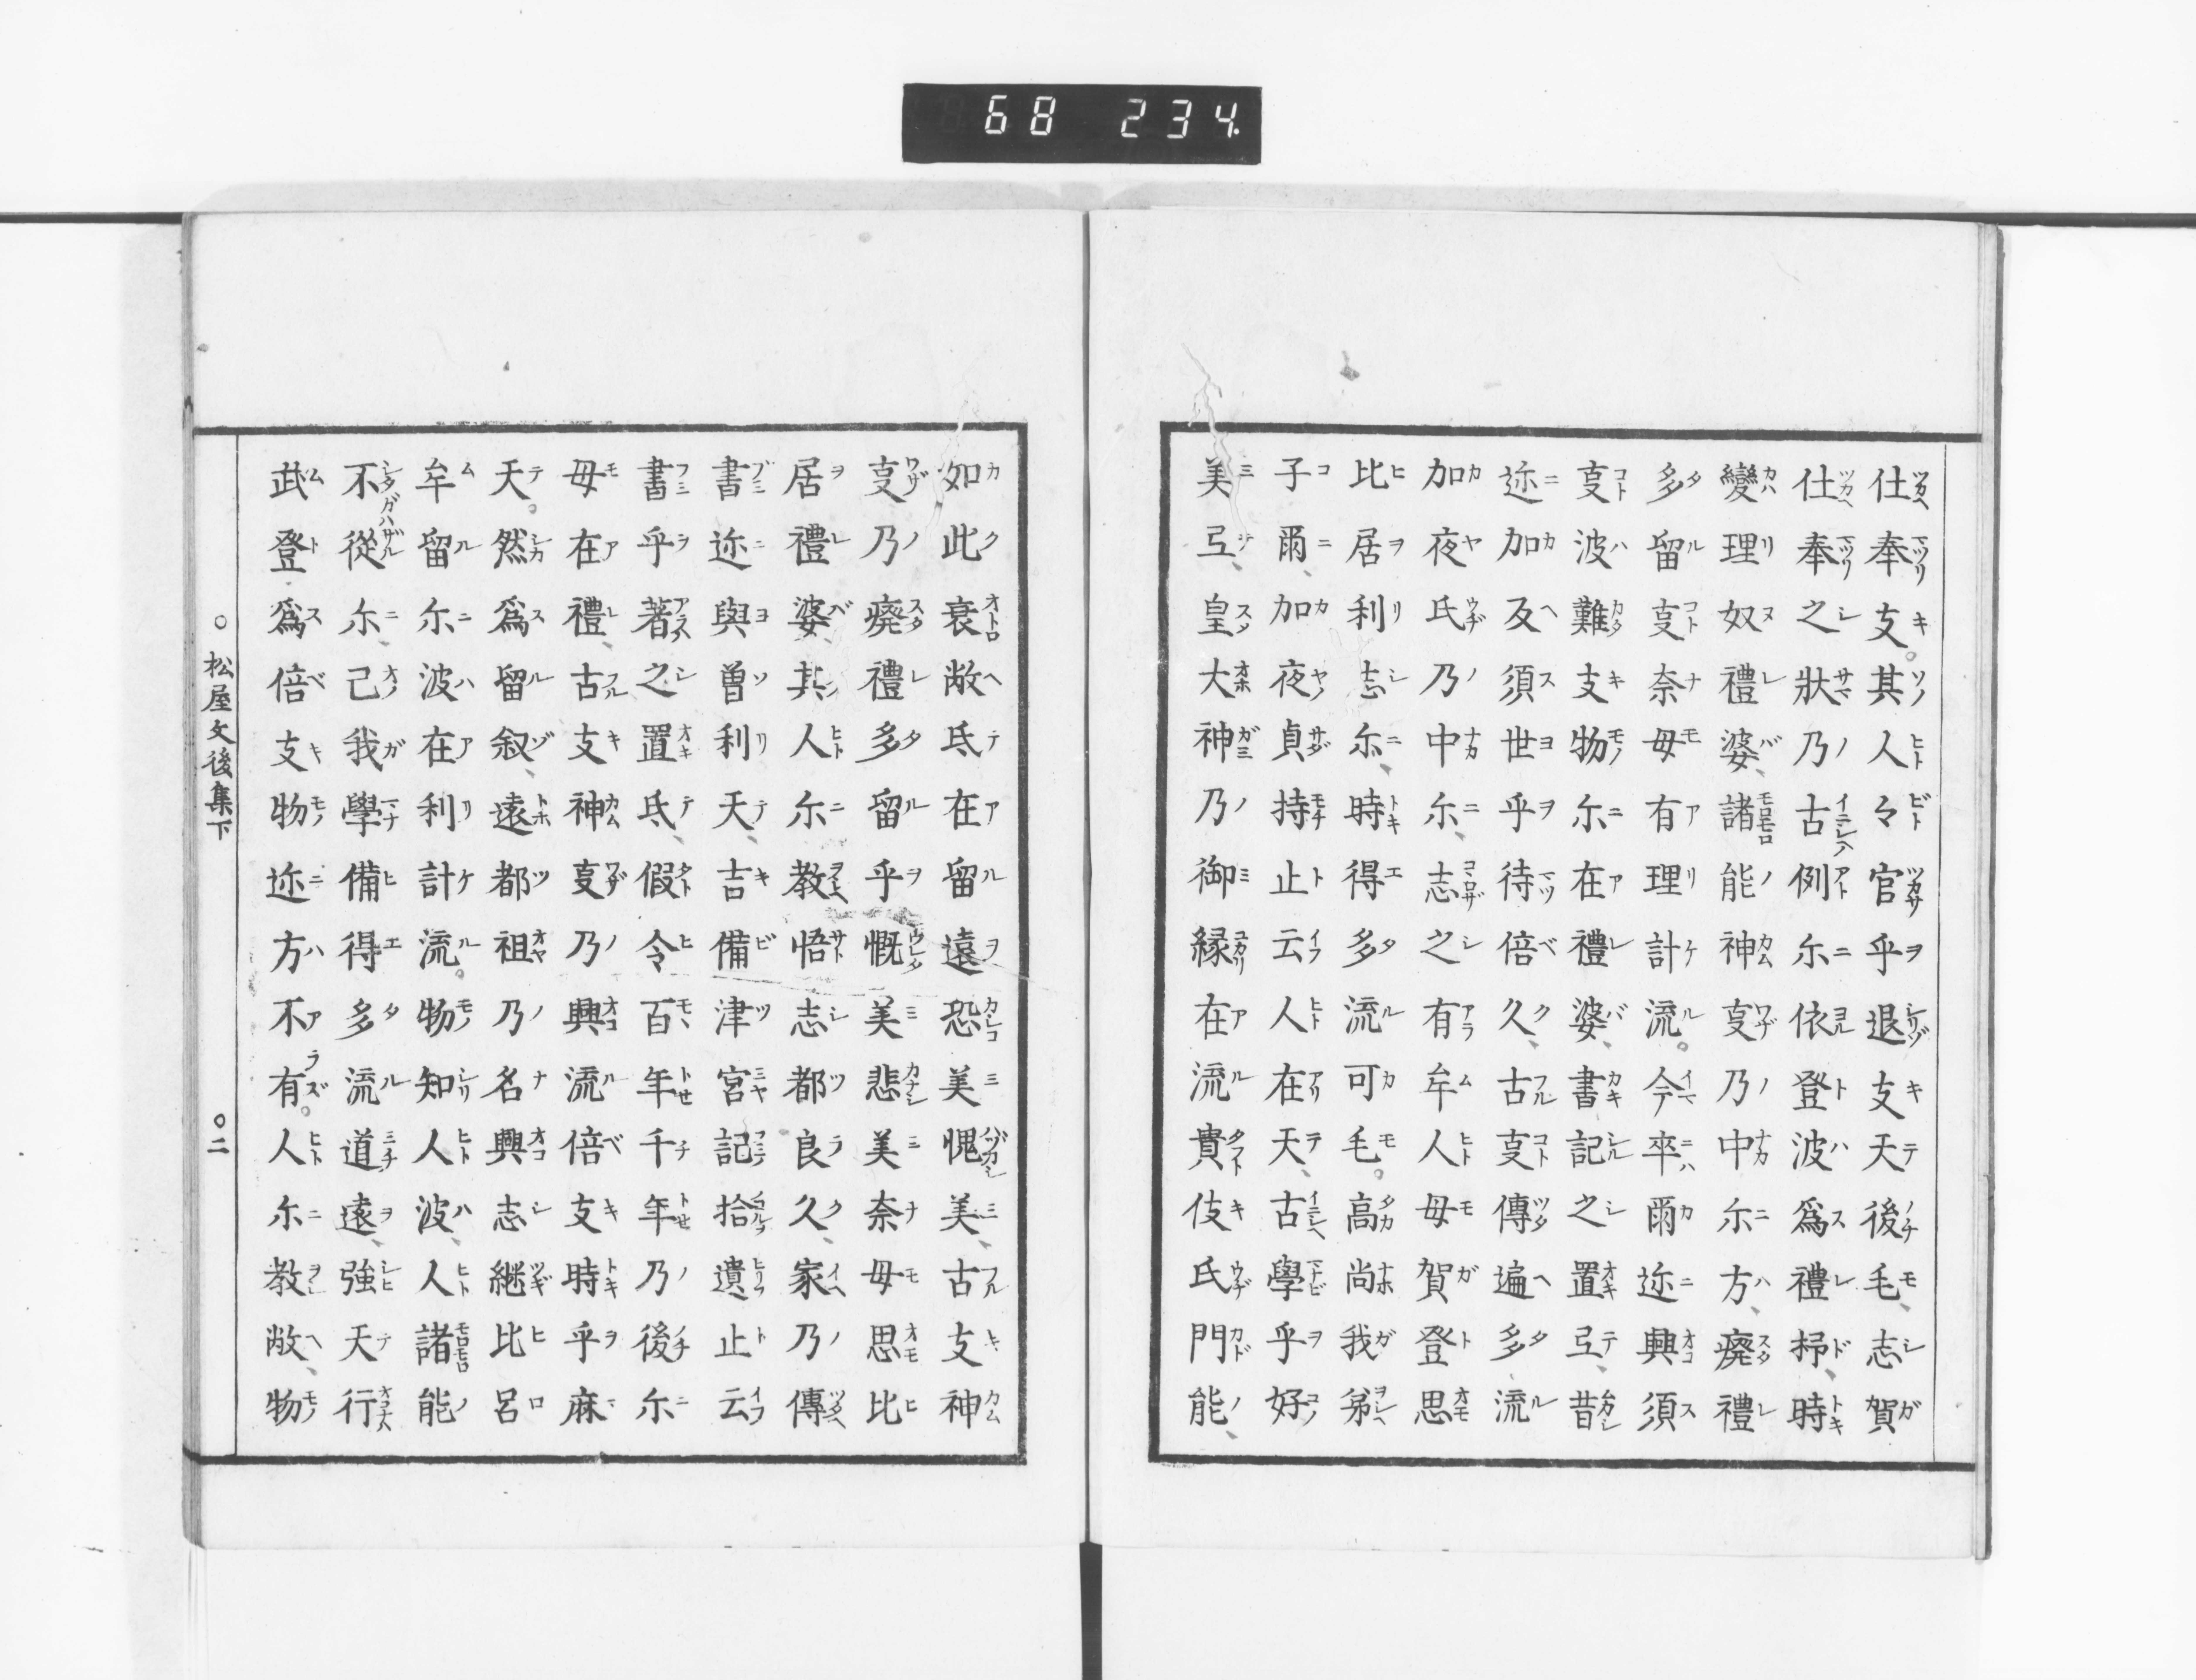 68 234.
仕奉支。其人々官乎退支天後毛、志賀
仕奉之狀乃古例尓依登波爲禮抔、時
變理奴禮婆、諸能神叓乃中尓方、癈禮
多留叓奈母有理計流。今卒爾迩興須
叓波難支物尓在禮婆、書記之置弖、昔
迩加反須世乎待倍久、古叓傳遍多流
加夜氏乃中尓、志之有牟人母賀登思
比居利志尓、時得多流可毛。高尚我弟
子爾、加夜貞持止云人在天、古學乎好
美弖、皇大神乃御縁在流貴伎氏門能、
如此衰敝氐在留遠恐美愧美、古支神
叓乃癈禮多留乎慨美悲美奈母思比
居禮婆、其人尓教悟志都良久、家乃傳
書迩與曽利天、吉備津宮記拾遺止云
書乎著之置氐、假令百年千年乃後尓
母在禮、古支神叓乃興流倍支時乎麻
天。然爲留叙、遠都祖乃名興志継比呂
牟留尓波在利計流。物知人波、人諸能
不從尓、己我學備得多流道遠、強天行
武登爲倍支物迩方不有。人尓教敝、物
○松屋文後集下 ○二